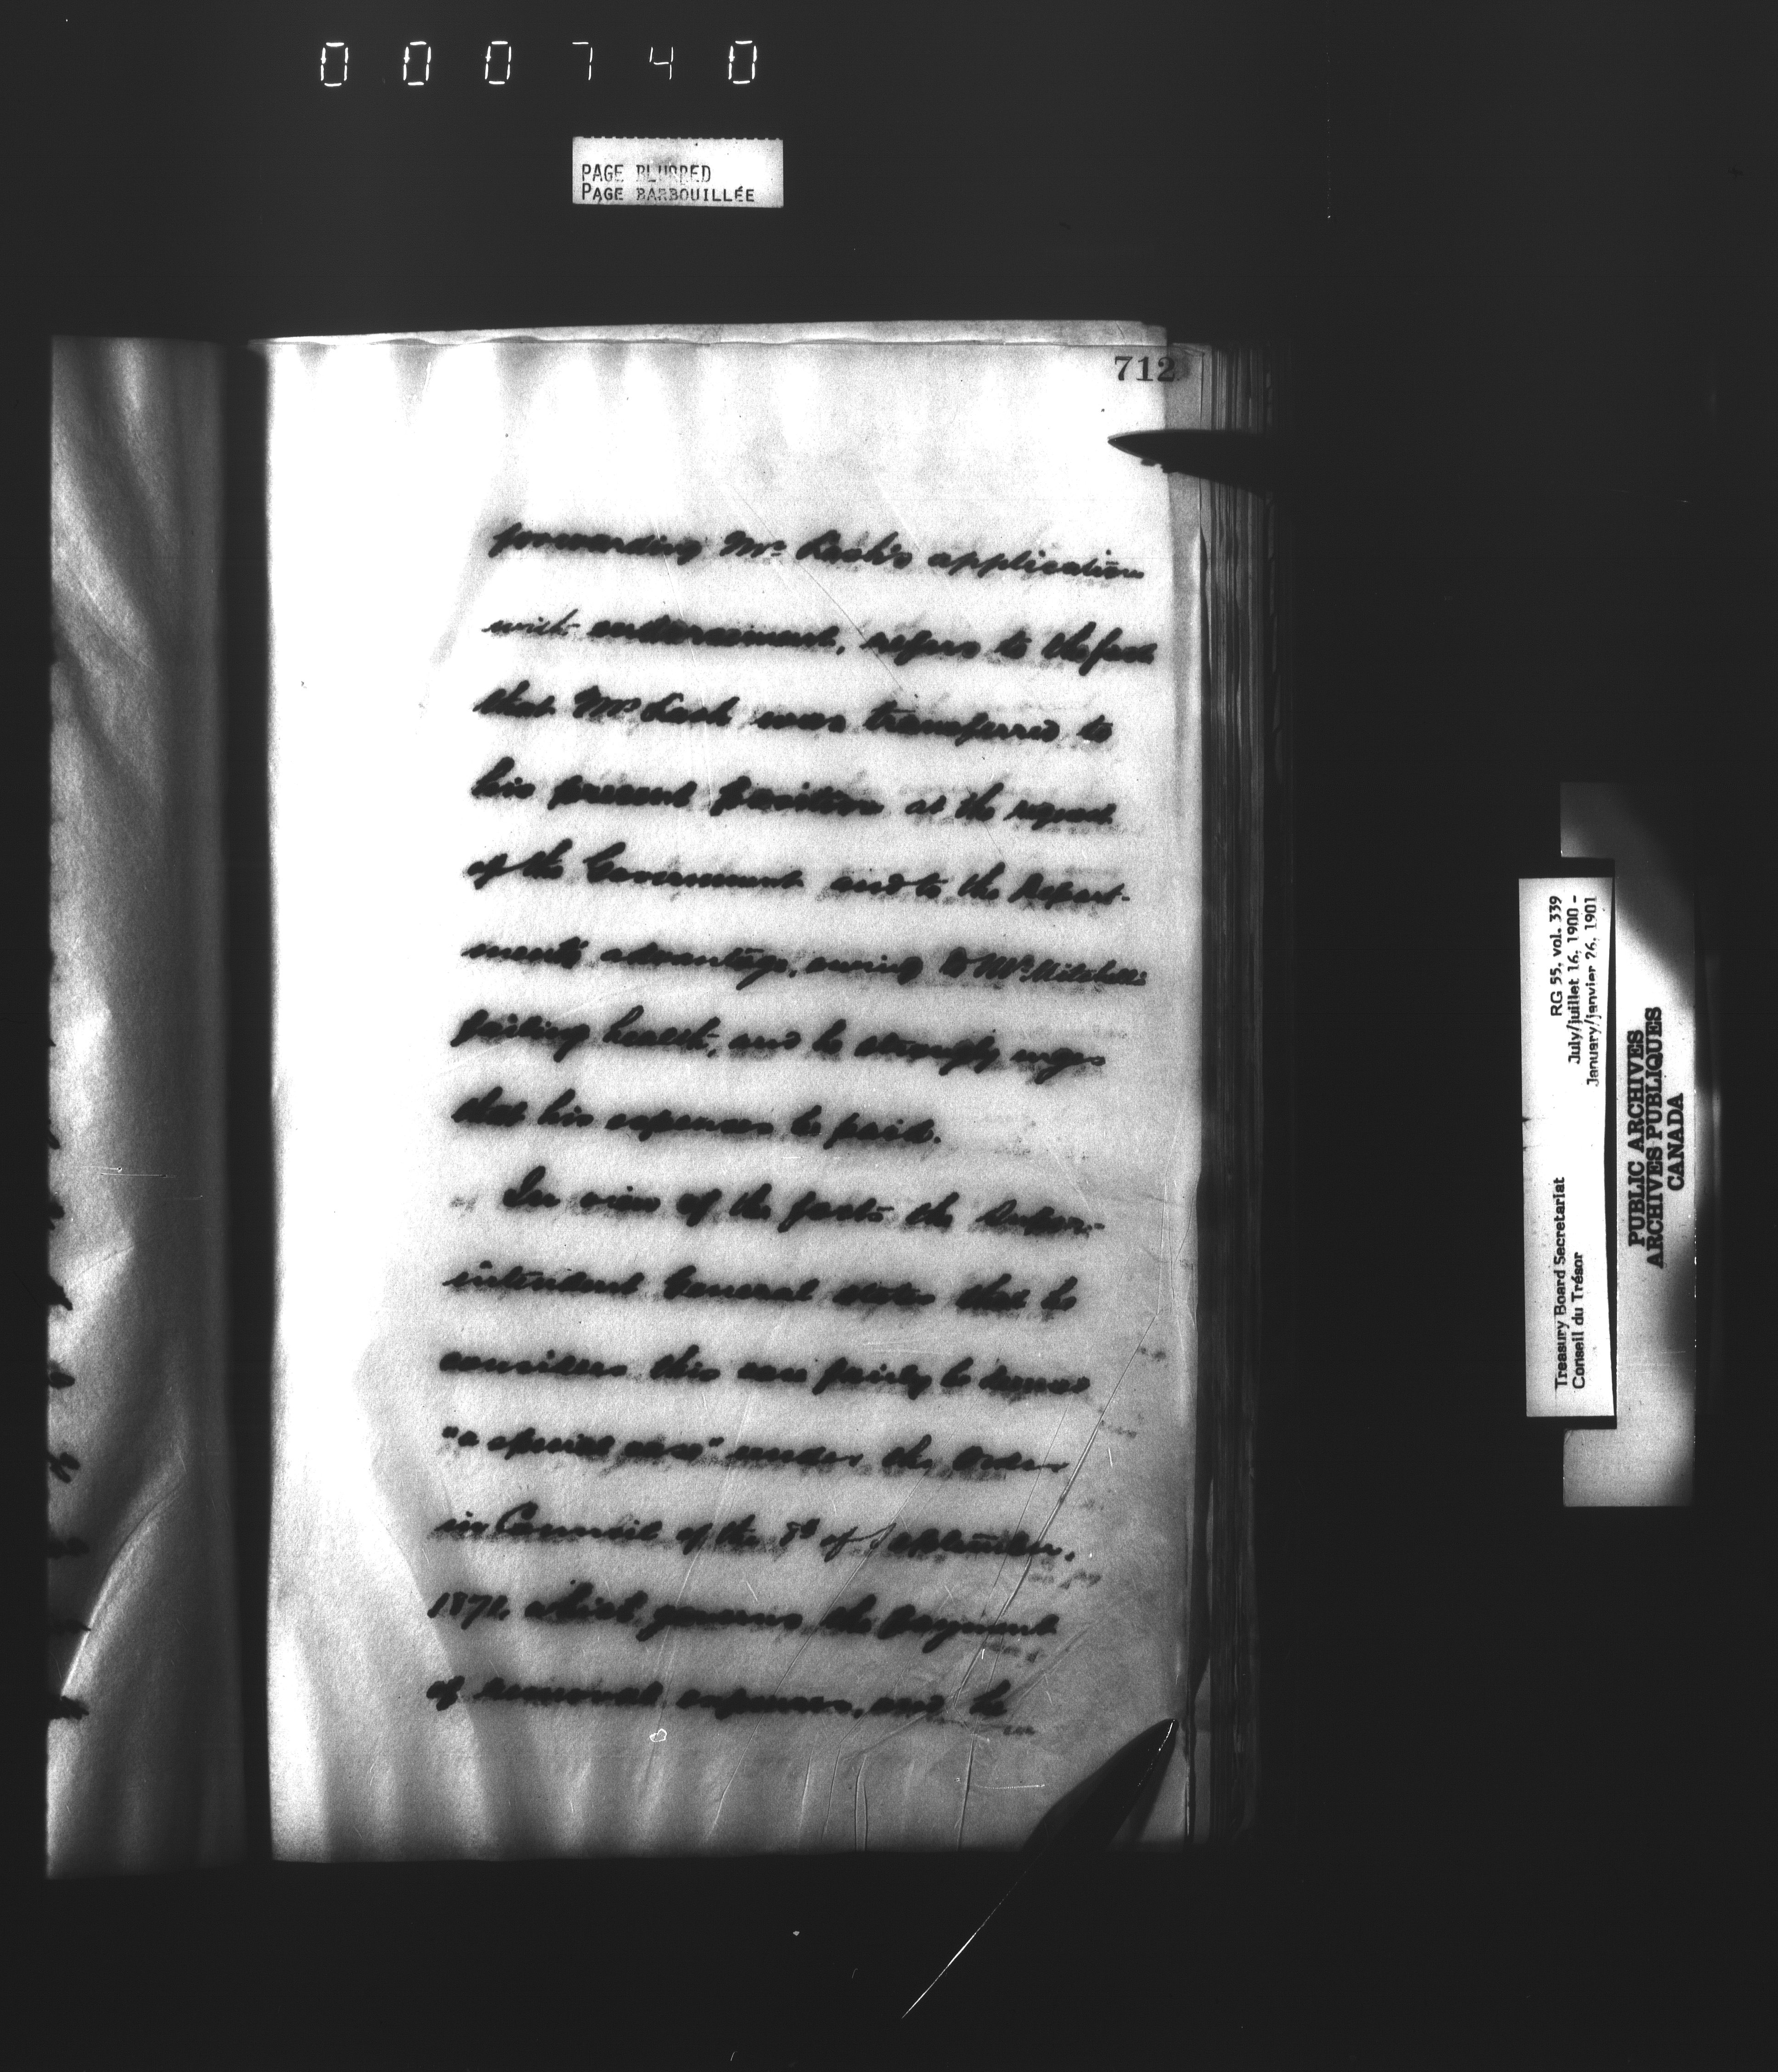 000740
PAGE BLURRED
PAGE BARBOUILLÉE
712
forwarding Mr. Lash's application
with endorsement, refers to the fact
that Mr Lash was transferred to
his present position at the request
of the Government and to the Depart-
ment's advantage, owing to Mr Mitchell's
failing health, and he strongly urges
that his expenses be paid.
In view of the facts the Super-
intendent General states that he
considers this can fairly be termed
"a special case" under the Order
in Council of the 8th of September,
1871, which governs the payment
of removal expenses, and he
RG 55, vol. 339
July/juillet 16, 1900 -
January/janvier 26, 1901
Treasury Board Secretariat
Conseil du Trésor
PUBLIC ARCHIVES
ARCHIVES PUBLIQUES
CANADA